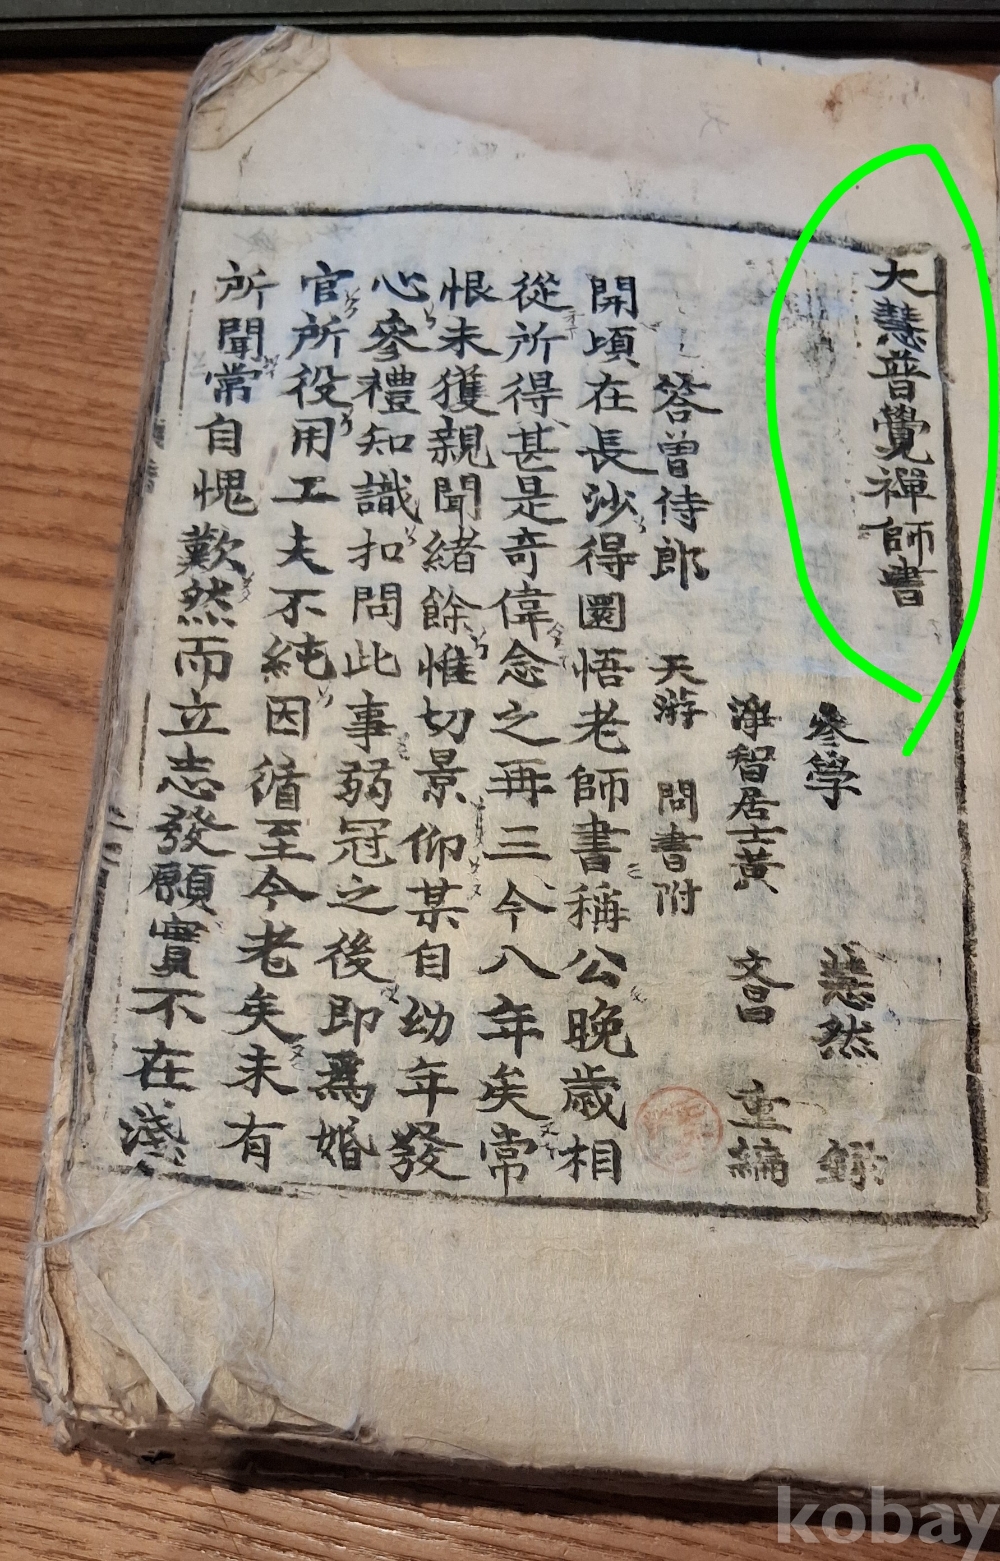 大慧普覺禪師書
參學 慧然 錄
淨智居士黃 文昌 重編
答曾侍郎 天游 問書附
開頃在長沙得圜悟老師書稱公晚歲相
從所得甚是奇偉念之再三今八年矣常
恨未獲親聞緖餘惟切景仰某自幼年發
心參禮知識扣問此事弱冠之後即爲婚
官所役用工夫不純因循至今老矣未有
所聞常自愧歎然而立志發願實不在淺
kobay